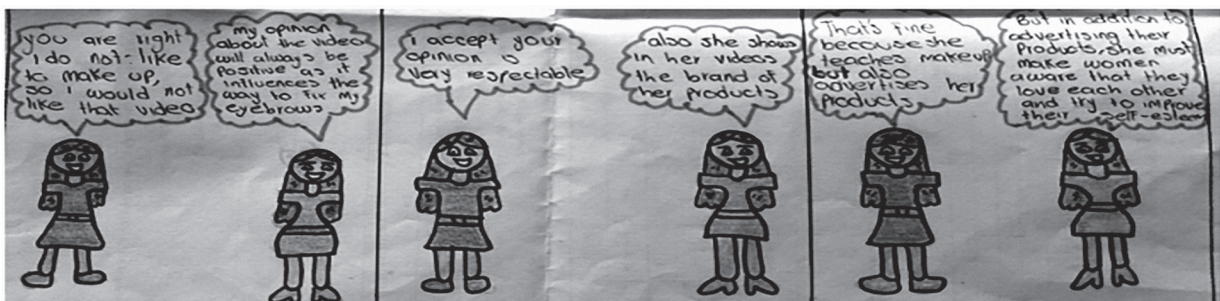 you are right
i do not like
to make up,
so i would not
like that video
my opinion
about the video
will always be
positive as it
influences the
way to fix my
eyebrows
i accept your
opinion is
very respectable
also she shows
in her videos
the brand of
her products
That's fine
because she
teaches makeup
but also
advertises her
products
But in addition to
advertising their
products, she must
make women
aware that they
love each other
and try to improve
their self-esteem